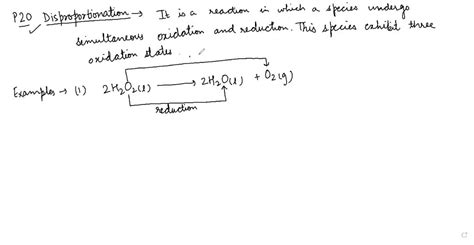 P20 Disproportionation → It is a reaction in which a species undergo
simultaneous oxidation and reduction. This species exhibit three
oxidation states ...
Examples → (1) 2H₂O₂(l) → 2H₂O(l) + O₂(g)
reduction